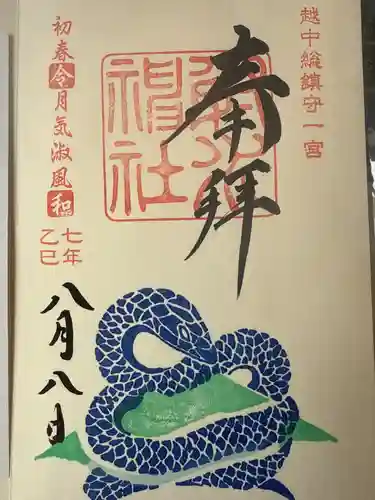 越中総鎮守一宮
奉拝
射水神社
初春令月気淑風和
七年
乙巳
八月八日